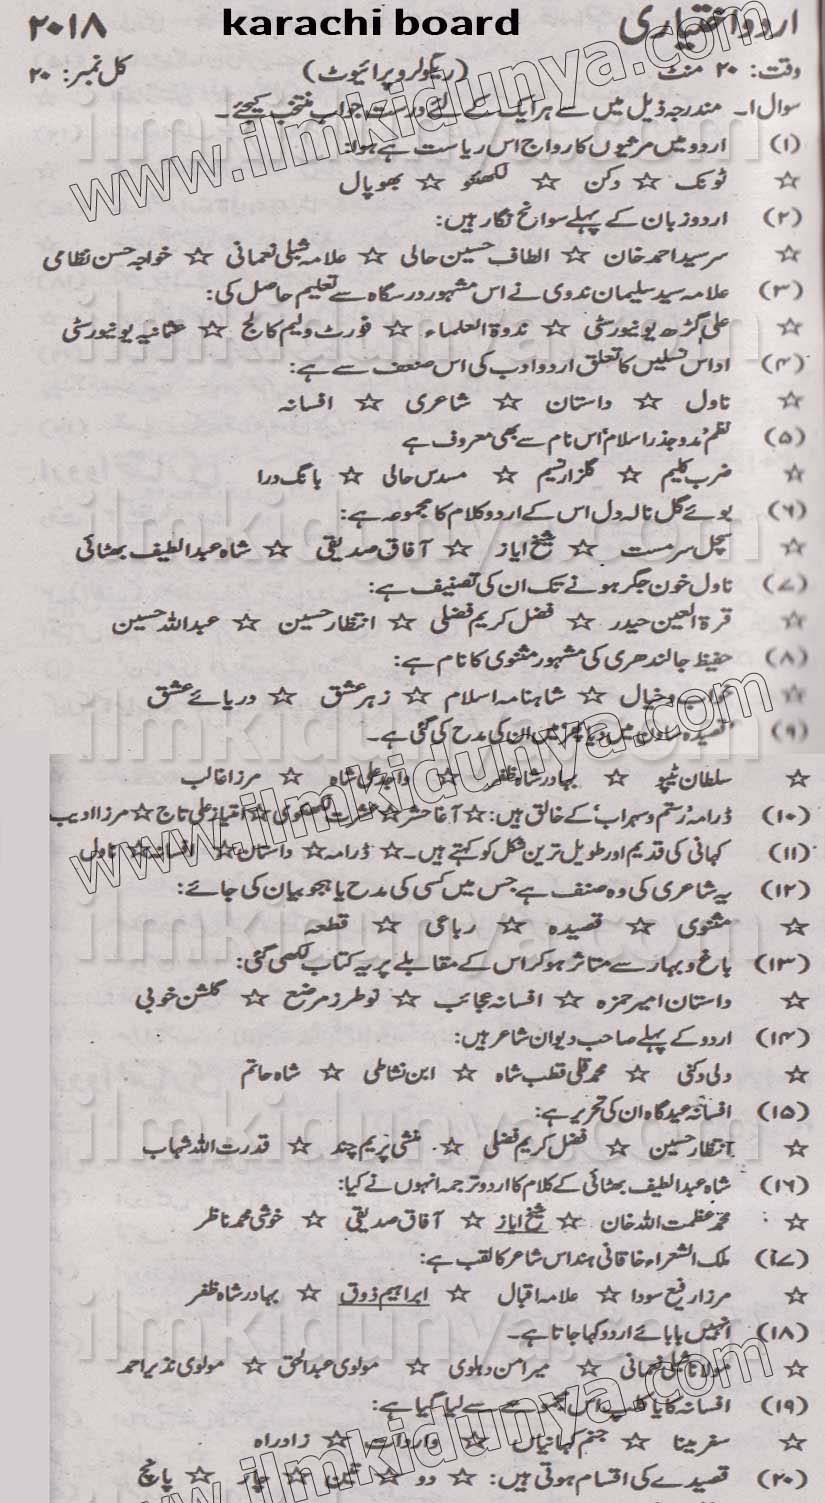 اردو اختیاری karachi board ۲۰۱۸
وقت: ۲۰ منٹ (ریگولر و پرائیوٹ) کل نمبر: ۲۰
سوال ۱۔ مندرجہ ذیل میں سے ہر ایک کے لئے درست جواب منتخب کیجئے۔
(۱) اردو میں مرثیوں کا رواج اس ریاست سے ہوا:
☆ ٹونک ☆ دکن ☆ لکھنؤ ☆ بھوپال
(۲) اردو زبان کے پہلے سوانح نگار ہیں:
☆ سرسید احمد خان ☆ الطاف حسین حالی ☆ علامہ شبلی نعمانی ☆ خواجہ حسن نظامی
(۳) علامہ سید سلیمان ندوی نے اس مشہور درسگاہ سے تعلیم حاصل کی:
☆ علی گڑھ یونیورسٹی ☆ ندوۃ العلماء ☆ فورٹ ولیم کالج ☆ عثمانیہ یونیورسٹی
(۴) اداس نسلیں کا تعلق اردو ادب کی اس صنف سے ہے:
☆ ناول ☆ داستان ☆ شاعری ☆ افسانہ
(۵) نظم 'مدوجذر اسلام' اس نام سے بھی معروف ہے
☆ ضرب کلیم ☆ گلزار نسیم ☆ مسدس حالی ☆ بانگ درا
(۶) بوئے گل نالہ دل اس کے اردو کلام کا مجموعہ ہے:
☆ سچل سرمست ☆ شیخ ایاز ☆ آفاق صدیقی ☆ شاہ عبداللطیف بھٹائی
(۷) ناول خون جگر ہونے تک ان کی تصنیف ہے:
☆ قرۃ العین حیدر ☆ فضل کریم فضلی ☆ انتظار حسین ☆ عبداللہ حسین
(۸) حفیظ جالندھری کی مشہور مثنوی کا نام ہے:
☆ خواب و خیال ☆ شاہنامہ اسلام ☆ زہر عشق ☆ دریائے عشق
(۹) قصیدہ میں ان کی مدح کی گئی ہے۔
☆ سلطان ٹیپو ☆ بہادر شاہ ظفر ☆ واجد علی شاہ ☆ مرزا غالب
(۱۰) ڈرامہ 'رستم و سہراب' کے خالق ہیں: ☆ آغا حشر ☆ عشرت لکھنوی ☆ امتیاز علی تاج ☆ مرزا ادیب
(۱۱) کہانی کی قدیم اور طویل ترین شکل کو کہتے ہیں۔ ☆ ڈرامہ ☆ داستان ☆ افسانہ ☆ ناول
(۱۲) یہ شاعری کی وہ صنف ہے جس میں کسی کی مدح یا ہجو بیان کی جائے:
☆ مثنوی ☆ قصیدہ ☆ رباعی ☆ قطعہ
(۱۳) باغ و بہار سے متاثر ہو کر اس کے مقابلے پر یہ کتاب لکھی گئی:
☆ داستان امیر حمزہ ☆ افسانہ عجائب ☆ نوطرز مرصع ☆ گلشن خوبی
(۱۴) اردو کے پہلے صاحب دیوان شاعر ہیں:
☆ ولی دکنی ☆ محمد قلی قطب شاہ ☆ ابن نشاطی ☆ شاہ حاتم
(۱۵) افسانہ عیدگاہ ان کی تحریر ہے:
☆ انتظار حسین ☆ فضل کریم فضلی ☆ منشی پریم چند ☆ قدرت اللہ شہاب
(۱۶) شاہ عبداللطیف بھٹائی کے کلام کا اردو ترجمہ انہوں نے کیا:
☆ محمد عظمت اللہ خان ☆ شیخ ایاز ☆ آفاق صدیقی ☆ خوشی محمد ناظر
(۱۷) ملک الشعراء خاقانی ہند اس شاعر کا لقب ہے:
☆ مرزا رفیع سودا ☆ علامہ اقبال ☆ ابراہیم ذوق ☆ بہادر شاہ ظفر
(۱۸) انہیں بابائے اردو کہا جاتا ہے۔
☆ مولانا شبلی نعمانی ☆ میر امن دہلوی ☆ مولوی عبدالحق ☆ مولوی نذیر احمد
(۱۹) افسانہ کایا کلپ اس مجموعے سے لیا گیا ہے:
☆ سفر مینا ☆ جنم کہانیاں ☆ واردات ☆ زاد راہ
(۲۰) قصیدے کی اقسام ہوتی ہیں: ☆ دو ☆ تین ☆ چار ☆ پانچ
www.ilmkidunya.com
www.ilmkidunya.com
www.ilmkidunya.com
ilmkidunya.com
ilmkidunya.com
ilmkidunya.com
ilmkidunya.com
ilmkidunya.com
ilmkidunya.com
ilmkidunya.com